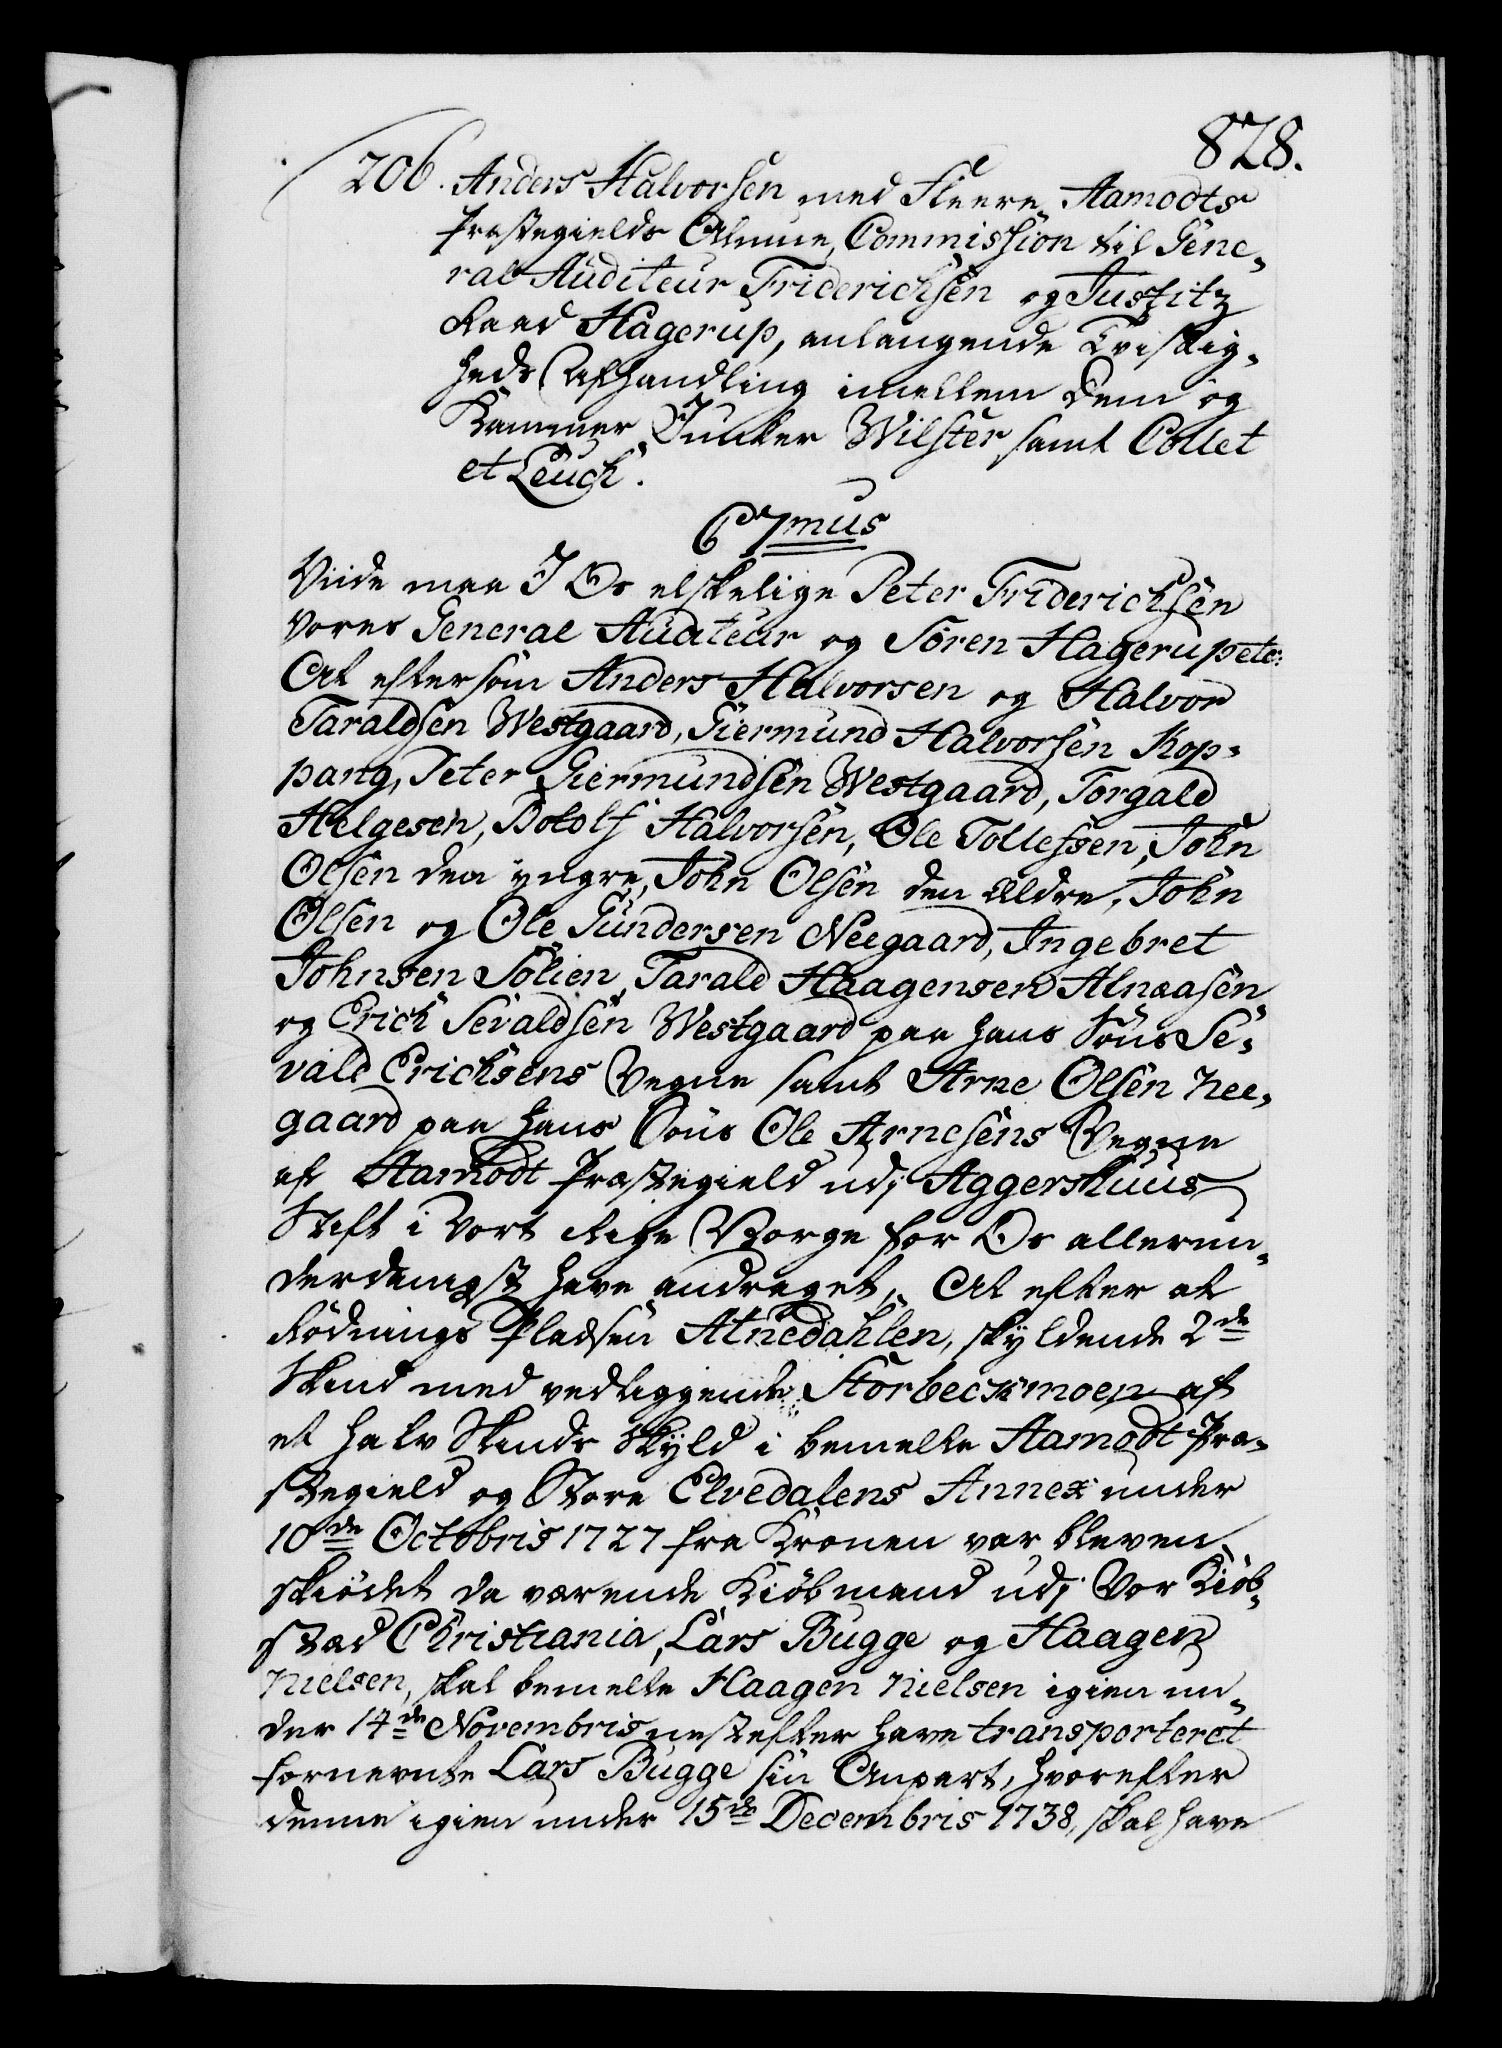 828.
206. Anders Halvorsen med Fleere Aamodts
Præstegields Almue, Commission til Gene-
ral Auditeur Friderichsen og Justitz
Raad Hagerup, anlangende Tvistig-
heds Afhandling imellem dem og
Kammer Junker Wilster samt Collet
et Leuch.
C 7mus
Viide maa I Os elskelige Peter Friderichsen
vores General Auditeur og Sören Hagerup etc:
At eftersom Anders Halvorsen og Halvor
Taraldsen Westgaard, Giermund Halvorsen Kop-
pang, Peter Giermundsen Westgaard, Torgald
Helgesen, Botolf Halvorsen, Ole Tollefsen, John
Olsen den yngre, John Olsen den Ældre, John
Olsen og Ole Gundersen Neegaard, Ingebret
Johnsen Sölien, Tarald Haagensen Alnæasen
og Erich Sevaldsen Westgaard paa hans Söns Se-
vald Erichsens Vegne samt Arne Olsen Nee-
gaard paa hans Söns Ole Arnesens Vegne
af Aamodt Præstegield udj Aggershuus
Stift i Vort Rige Norge for Os allerun-
derdanigst have andraget, At efter at
Rödnings Pladsen Atnedahlen, skyldende 2de
Skind med vedliggende Storbeckmoen af
et halv Skinds Skyld i bemelte Aamodt Præ-
stegield og Store Elvedalens Annex under
10de Octobris 1727 fra Kronen var bleven
skiödet da værende Kiöbmænd udj Vor Kiöb-
stad Christiania, Lars Bugge og Haagen
Nielsen, skal bemelte Haagen Nielsen igien un-
der 14de Novembris nestefter have transporteret
fornevnte Lars Bugge sin Anpart, hvorefter
denne igien under 15de Decembris 1738, skal have